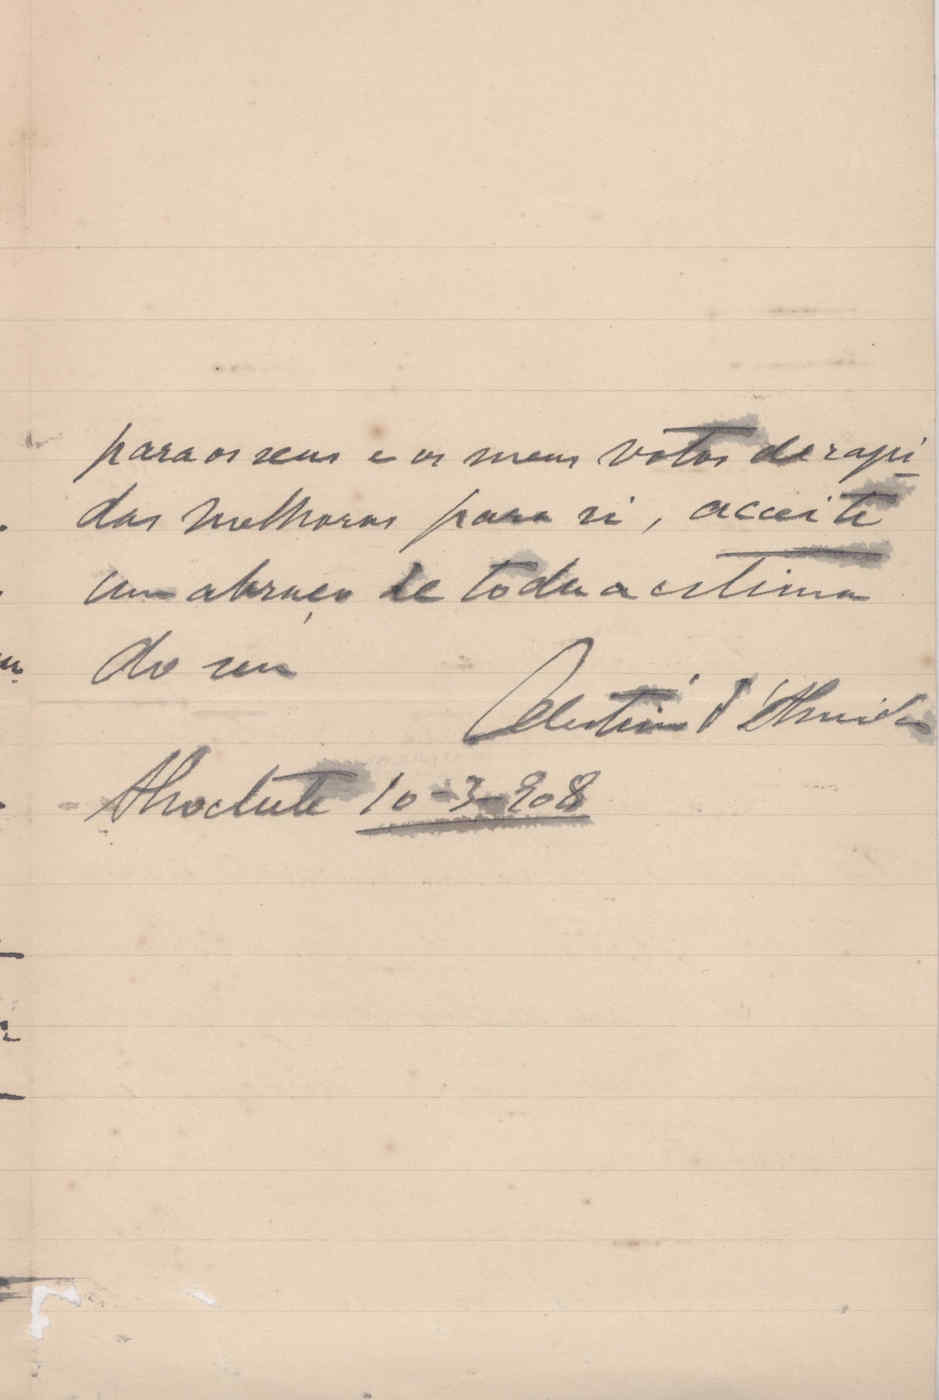 para os seus e os meus votos de rapi-
das melhoras para si, acceite
um abraço de toda a estima
do seu
Celestino d'Almeida
Alrochete 10-3-908